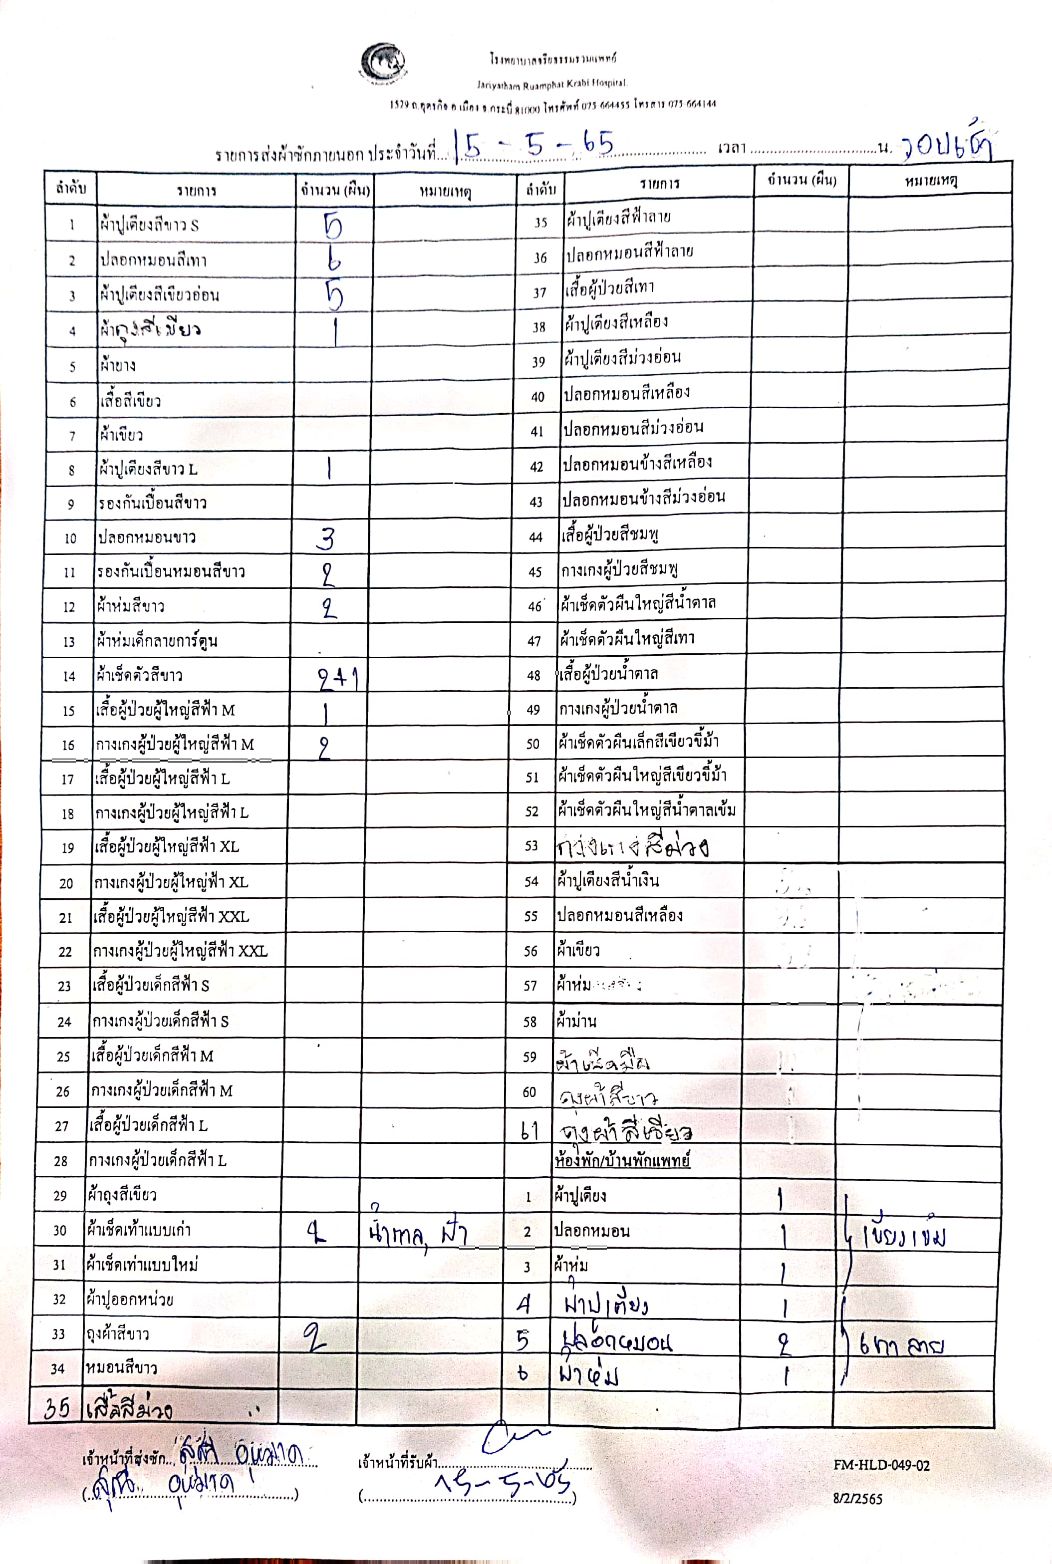 โรงพยาบาลจริยธรรมรวมแพทย์
Jariyatham Ruamphat Krabi Hospital.
1529 ถ.อุตรกิจ อ.เมือง จ.กระบี่ 81000 โทรศัพท์ 075-664455 โทรสาร 075-664144
รายการส่งผ้าซักภายนอก ประจำวันที่ 15-5-65 เวลา น. รอบเช้า
ลำดับ รายการ จำนวน (ผืน) หมายเหตุ ลำดับ รายการ จำนวน (ผืน) หมายเหตุ
1 ผ้าปูเตียงสีขาว S 5 35 ผ้าปูเตียงสีฟ้าลาย
2 ปลอกหมอนสีเทา 6 36 ปลอกหมอนสีฟ้าลาย
3 ผ้าปูเตียงสีเขียวอ่อน 5 37 เสื้อผู้ป่วยสีเทา
4 ผ้าถุงสีเขียว 1 38 ผ้าปูเตียงสีเหลือง
5 ผ้ายาง 39 ผ้าปูเตียงสีม่วงอ่อน
6 เสื้อสีเขียว 40 ปลอกหมอนสีเหลือง
7 ผ้าเขียว 41 ปลอกหมอนสีม่วงอ่อน
8 ผ้าปูเตียงสีขาว L 1 42 ปลอกหมอนข้างสีเหลือง
9 รองกันเปื้อนสีขาว 43 ปลอกหมอนข้างสีม่วงอ่อน
10 ปลอกหมอนขาว 3 44 เสื้อผู้ป่วยสีชมพู
11 รองกันเปื้อนหมอนสีขาว 2 45 กางเกงผู้ป่วยสีชมพู
12 ผ้าห่มสีขาว 2 46 ผ้าเช็ดตัวผืนใหญ่สีน้ำตาล
13 ผ้าห่มเด็กลายการ์ตูน 47 ผ้าเช็ดตัวผืนใหญ่สีเทา
14 ผ้าเช็ดตัวสีขาว 2+1 48 เสื้อผู้ป่วยน้ำตาล
15 เสื้อผู้ป่วยผู้ใหญ่สีฟ้า M 1 49 กางเกงผู้ป่วยน้ำตาล
16 กางเกงผู้ป่วยผู้ใหญ่สีฟ้า M 2 50 ผ้าเช็ดตัวผืนเล็กสีเขียวขี้ม้า
17 เสื้อผู้ป่วยผู้ใหญ่สีฟ้า L 51 ผ้าเช็ดตัวผืนใหญ่สีเขียวขี้ม้า
18 กางเกงผู้ป่วยผู้ใหญ่สีฟ้า L 52 ผ้าเช็ดตัวผืนใหญ่สีน้ำตาลเข้ม
19 เสื้อผู้ป่วยผู้ใหญ่สีฟ้า XL 53 กางเกงสีม่วง
20 กางเกงผู้ป่วยผู้ใหญ่ฟ้า XL 54 ผ้าปูเตียงสีน้ำเงิน
21 เสื้อผู้ป่วยผู้ใหญ่สีฟ้า XXL 55 ปลอกหมอนสีเหลือง
22 กางเกงผู้ป่วยผู้ใหญ่สีฟ้า XXL 56 ผ้าเขียว
23 เสื้อผู้ป่วยเด็กสีฟ้า S 57 ผ้าห่ม
24 กางเกงผู้ป่วยเด็กสีฟ้า S 58 ผ้าม่าน
25 เสื้อผู้ป่วยเด็กสีฟ้า M 59 ผ้าเช็ดมือ
26 กางเกงผู้ป่วยเด็กสีฟ้า M 60 ถุงผ้าสีขาว
27 เสื้อผู้ป่วยเด็กสีฟ้า L 61 ถุงผ้าสีเขียว
28 กางเกงผู้ป่วยเด็กสีฟ้า L ห้องพัก/บ้านพักแพทย์
29 ผ้าถุงสีเขียว 1 ผ้าปูเตียง 1
30 ผ้าเช็ดเท้าแบบเก่า 2 น้ำตาล, ฟ้า 2 ปลอกหมอน 1 เขียวเข้ม
31 ผ้าเช็ดเท้าแบบใหม่ 3 ผ้าห่ม 1
32 ผ้าปูออกหน่วย 4 ผ้าปูเตียง 1
33 ถุงผ้าสีขาว 2 5 ปลอกหมอน 2 เทาลาย
34 หมอนสีขาว 6 ผ้าห่ม 1
35 เสื้อสีม่วง
เจ้าหน้าที่ส่งซัก เจ้าหน้าที่รับผ้า FM-HLD-049-02
15-5-65 8/2/2565